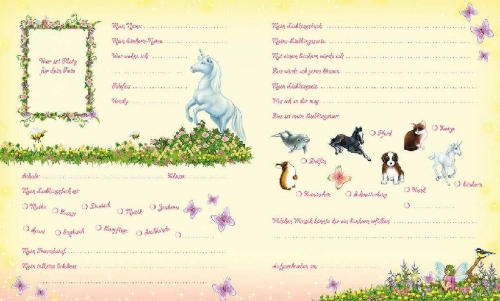 Hier ist Platz
für dein Foto
Mein Name:
Mein Einhorn-Name:
Hier wohne ich:
Telefon:
Handy:
Schule: Klasse:
Mein Lieblingsfach ist:
Mathe Kunst Deutsch Musik
Sport Englisch
Mein Traumberuf:
Mein tollstes Erlebnis:
Mein Lieblingsbuch:
Mit einem Einhorn würde ich
Das würde ich gerne können:
Was ich an dir mag:
Das ist mein Lieblingstier:
Pferd Katze
Delfin
Hund Einhorn
Welchen Wunsch könnte dir ein Einhorn erfüllen
Aufgeschrieben am: